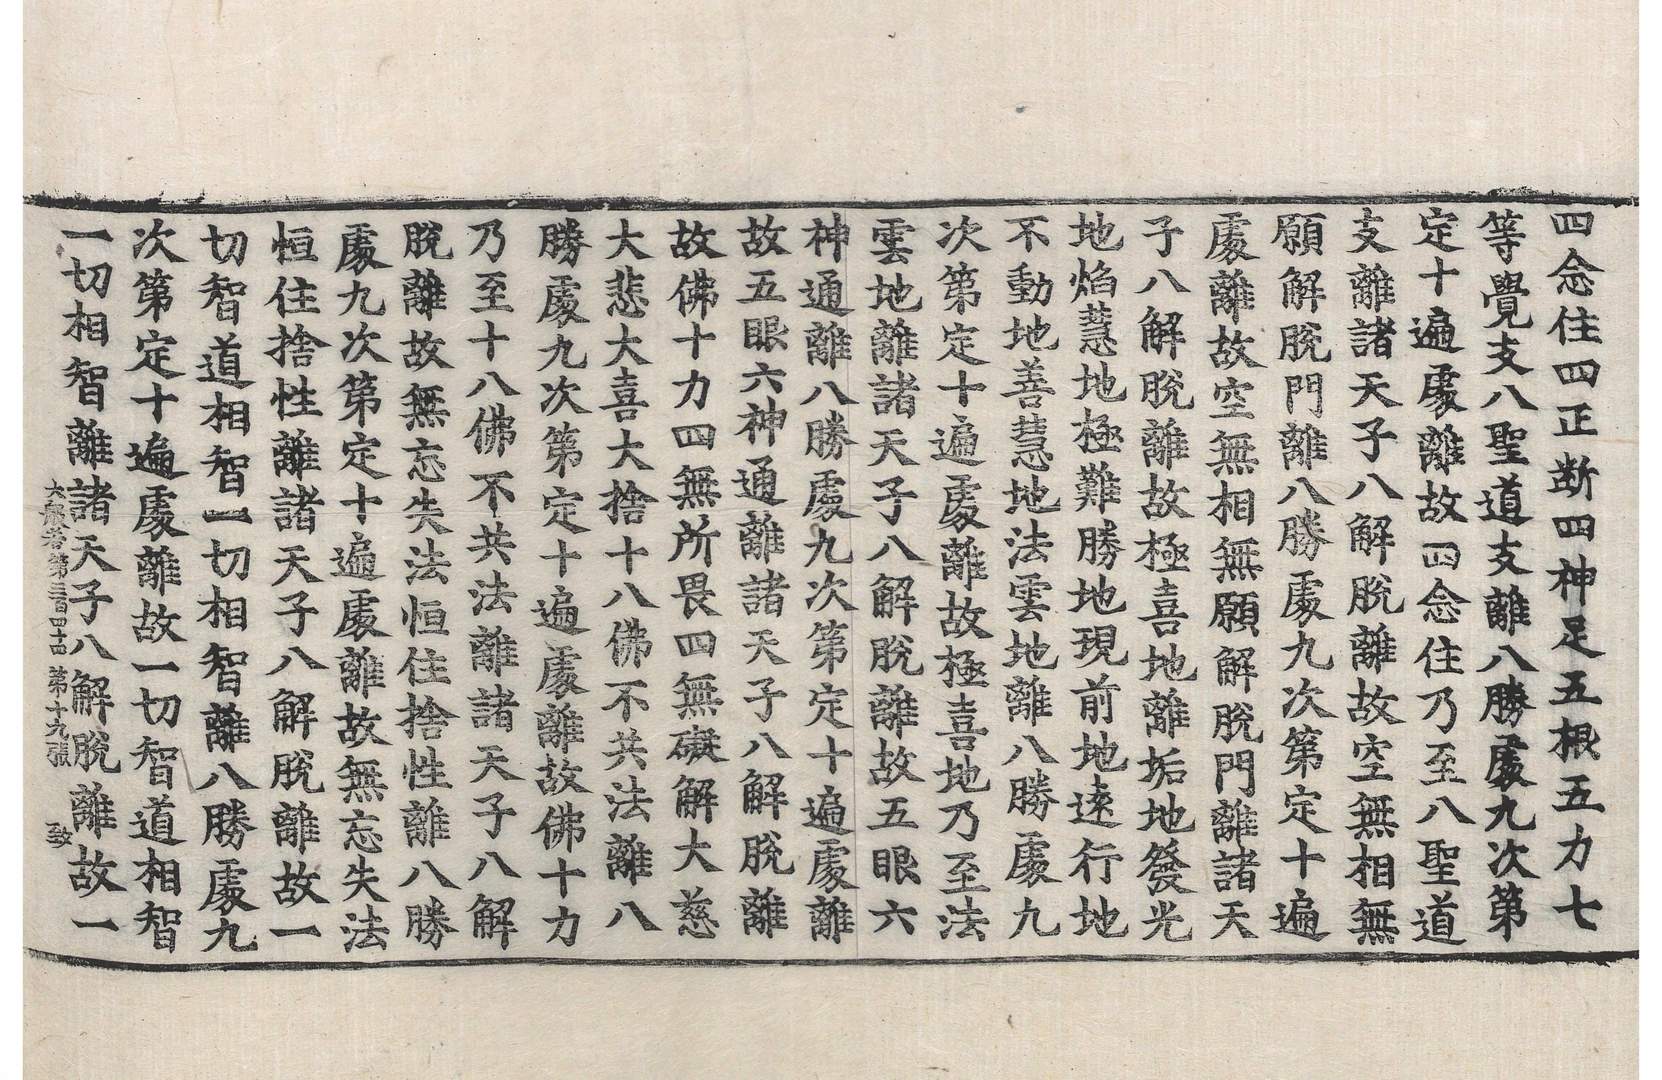 四念住四正断四神足五根五力七
等覺支八聖道支離八勝處九次第
定十遍處離故四念住乃至八聖道
支離諸天子八解脫離故空無相無
願解脫門離八勝處九次第定十遍
處離故空無相無願解脫門離諸天
子八解脫離故極喜地離垢地發光
地焰慧地極難勝地現前地遠行地
不動地善慧地法雲地離八勝處九
次第定十遍處離故極喜地乃至法
雲地離諸天子八解脫離故五眼六
神通離八勝處九次第定十遍處離
故五眼六神通離諸天子八解脫離
故佛十力四無所畏四無礙解大慈
大悲大喜大捨十八佛不共法離八
勝處九次第定十遍處離故佛十力
乃至十八佛不共法離諸天子八解
脫離故無忘失法恒住捨性離八勝
處九次第定十遍處離故無忘失法
恒住捨性離諸天子八解脫離故一
切智道相智一切相智離八勝處九
次第定十遍處離故一切智道相智
一切相智離諸天子八解脫離故一
大般若第三百四十 第十九張